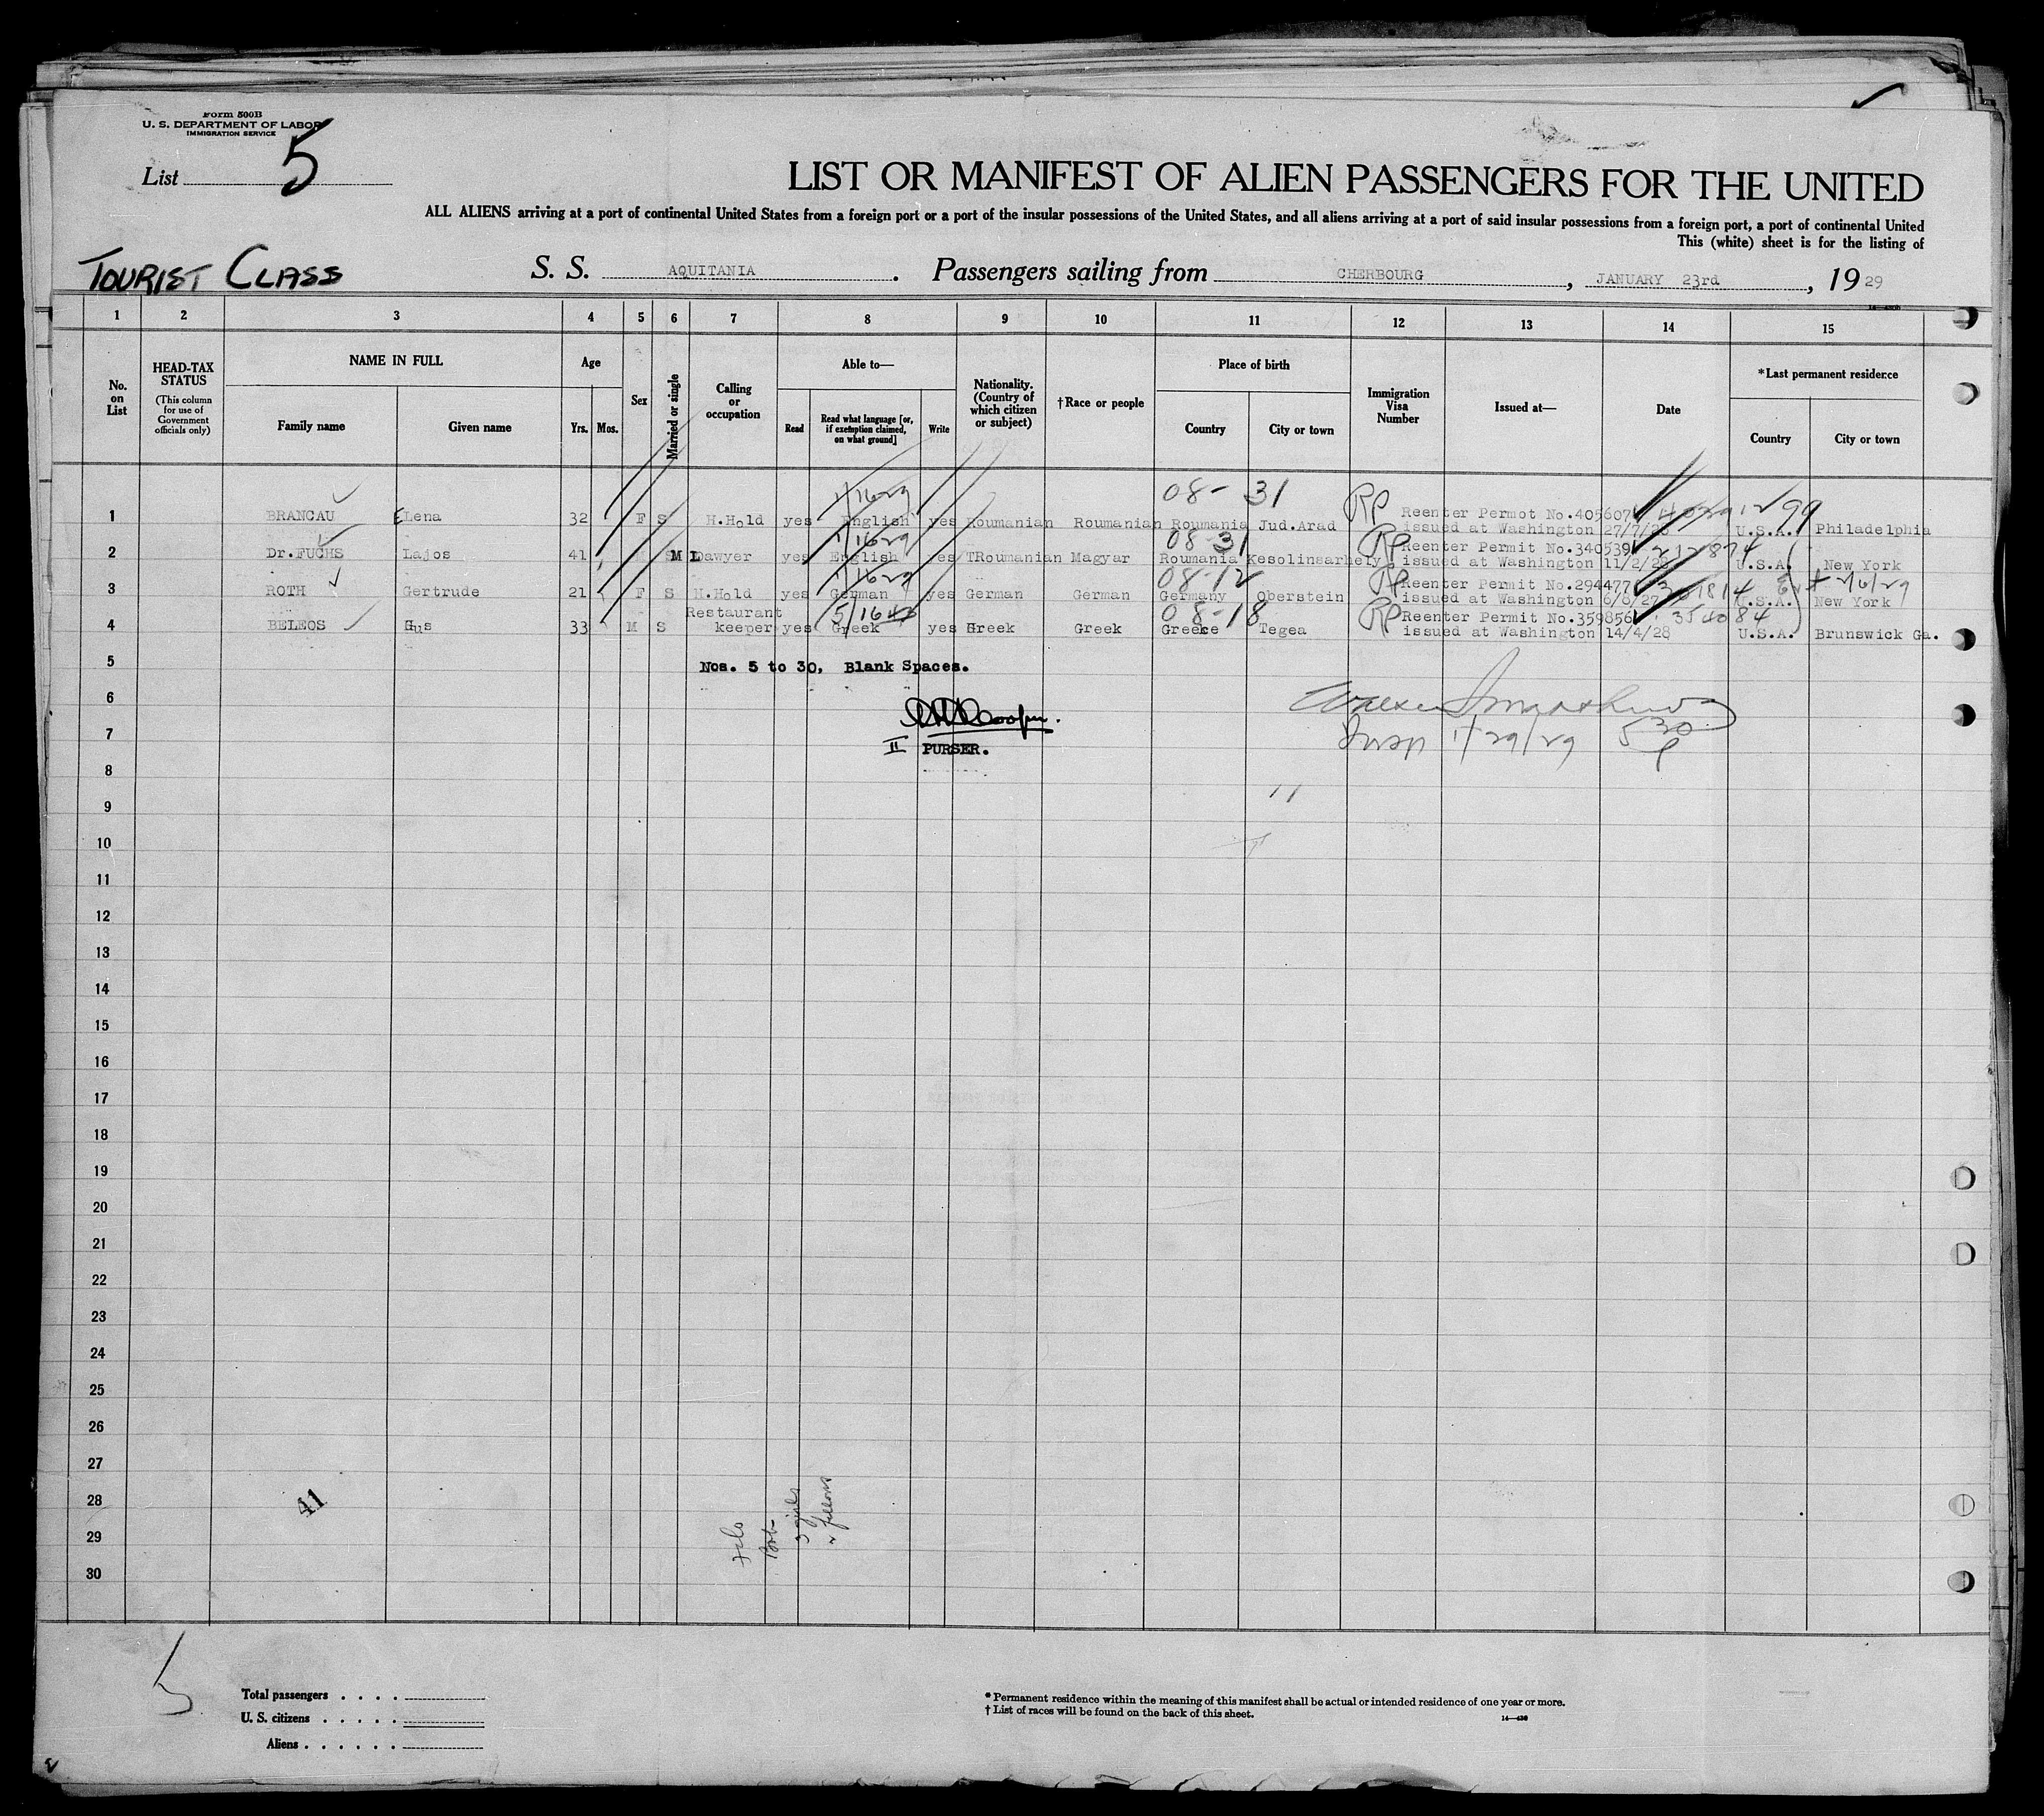 Form 500B
U. S. DEPARTMENT OF LABOR
IMMIGRATION SERVICE
List 5
LIST OR MANIFEST OF ALIEN PASSENGERS FOR THE UNITED
ALL ALIENS arriving at a port of continental United States from a foreign port or a port of the insular possessions of the United States, and all aliens arriving at a port of said insular possessions from a foreign port, a port of continental United
This (white) sheet is for the listing of
TOURIST CLASS S. S. AQUITANIA. Passengers sailing from CHERBOURG, JANUARY 23rd, 1929
1 2 3 4 5 6 7 8 9 10 11 12 13 14 15
No. on List
HEAD-TAX STATUS (This column for use of Government officials only)
NAME IN FULL
Family name Given name
Age
Yrs. Mos.
Sex
Married or single
Calling or occupation
Able to—
Read Read what language [or, if exemption claimed, on what ground] Write
Nationality. (Country of which citizen or subject)
†Race or people
Place of birth
Country City or town
Immigration Visa Number
Issued at—
Date
*Last permanent residence
Country City or town
1/1629 08-31
1 BRANCAU ELena 32 F S H.Hold yes English yes Roumanian Roumanian Roumania Jud.Arad RP Reenter Permot No.405607 issued at Washington 27/7/28 U.S.A. Philadelphia
1/1629 08-31
2 Dr.FUCHS Lajos 41 M Lawyer yes English yes Roumanian Magyar Roumania Kesolinsarhely RP Reenter Permit No.340539 issued at Washington 11/2/28 212874 U.S.A. New York
1/1629 08-12
3 ROTH Gertrude 21 F S H.Hold yes German yes German German Germany Oberstein RP Reenter Permit No.294477 issued at Washington 6/8/27 U.S.A. New York
5/16 08-18
4 BELEOS Gus 33 M S Restaurant keeper yes Greek yes Greek Greek Greece Tegea RP Reenter Permit No.359856 issued at Washington 14/4/28 354084 U.S.A. Brunswick Ga.
5 Nos. 5 to 30, Blank Spaces.
6
7 II PURSER. Insp 1/29/29 530
8
9
10
11
12
13
14
15
16
17
18
19
20
21
22
23
24
25
26
27
28 41
29
30
5
Total passengers
U. S. citizens
Aliens
* Permanent residence within the meaning of this manifest shall be actual or intended residence of one year or more.
† List of races will be found on the back of this sheet.